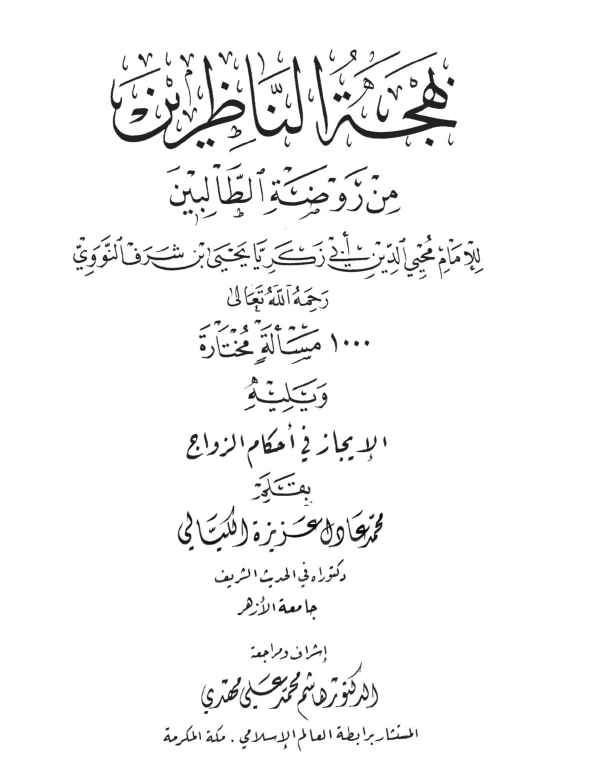 بَهْجَةُ النَّاظِرِينَ
مِنْ رَوْضَةِ الطَّالِبِينَ
لِلْإِمَامِ مُحْيِي الدِّينِ أَبِي زَكَرِيَّا يَحْيَى بْنِ شَرَفِ النَّوَوِيِّ
رَحِمَهُ اللَّهُ تَعَالَى
١٠٠٠ مَسْأَلَةٍ مُخْتَارَةٍ
وَيَلِيْهِ
الإيجاز في أحكام الزواج
بِقَلَم
محمّد عادل عزيزة الكيّالي
دكتوراه في الحديث الشريف
جامعة الأزهر
إشراف ومراجعة
الدكتور هاشم محمّد علي مهدي
المستشار برابطة العالم الإسلامي . مكة المكرمة